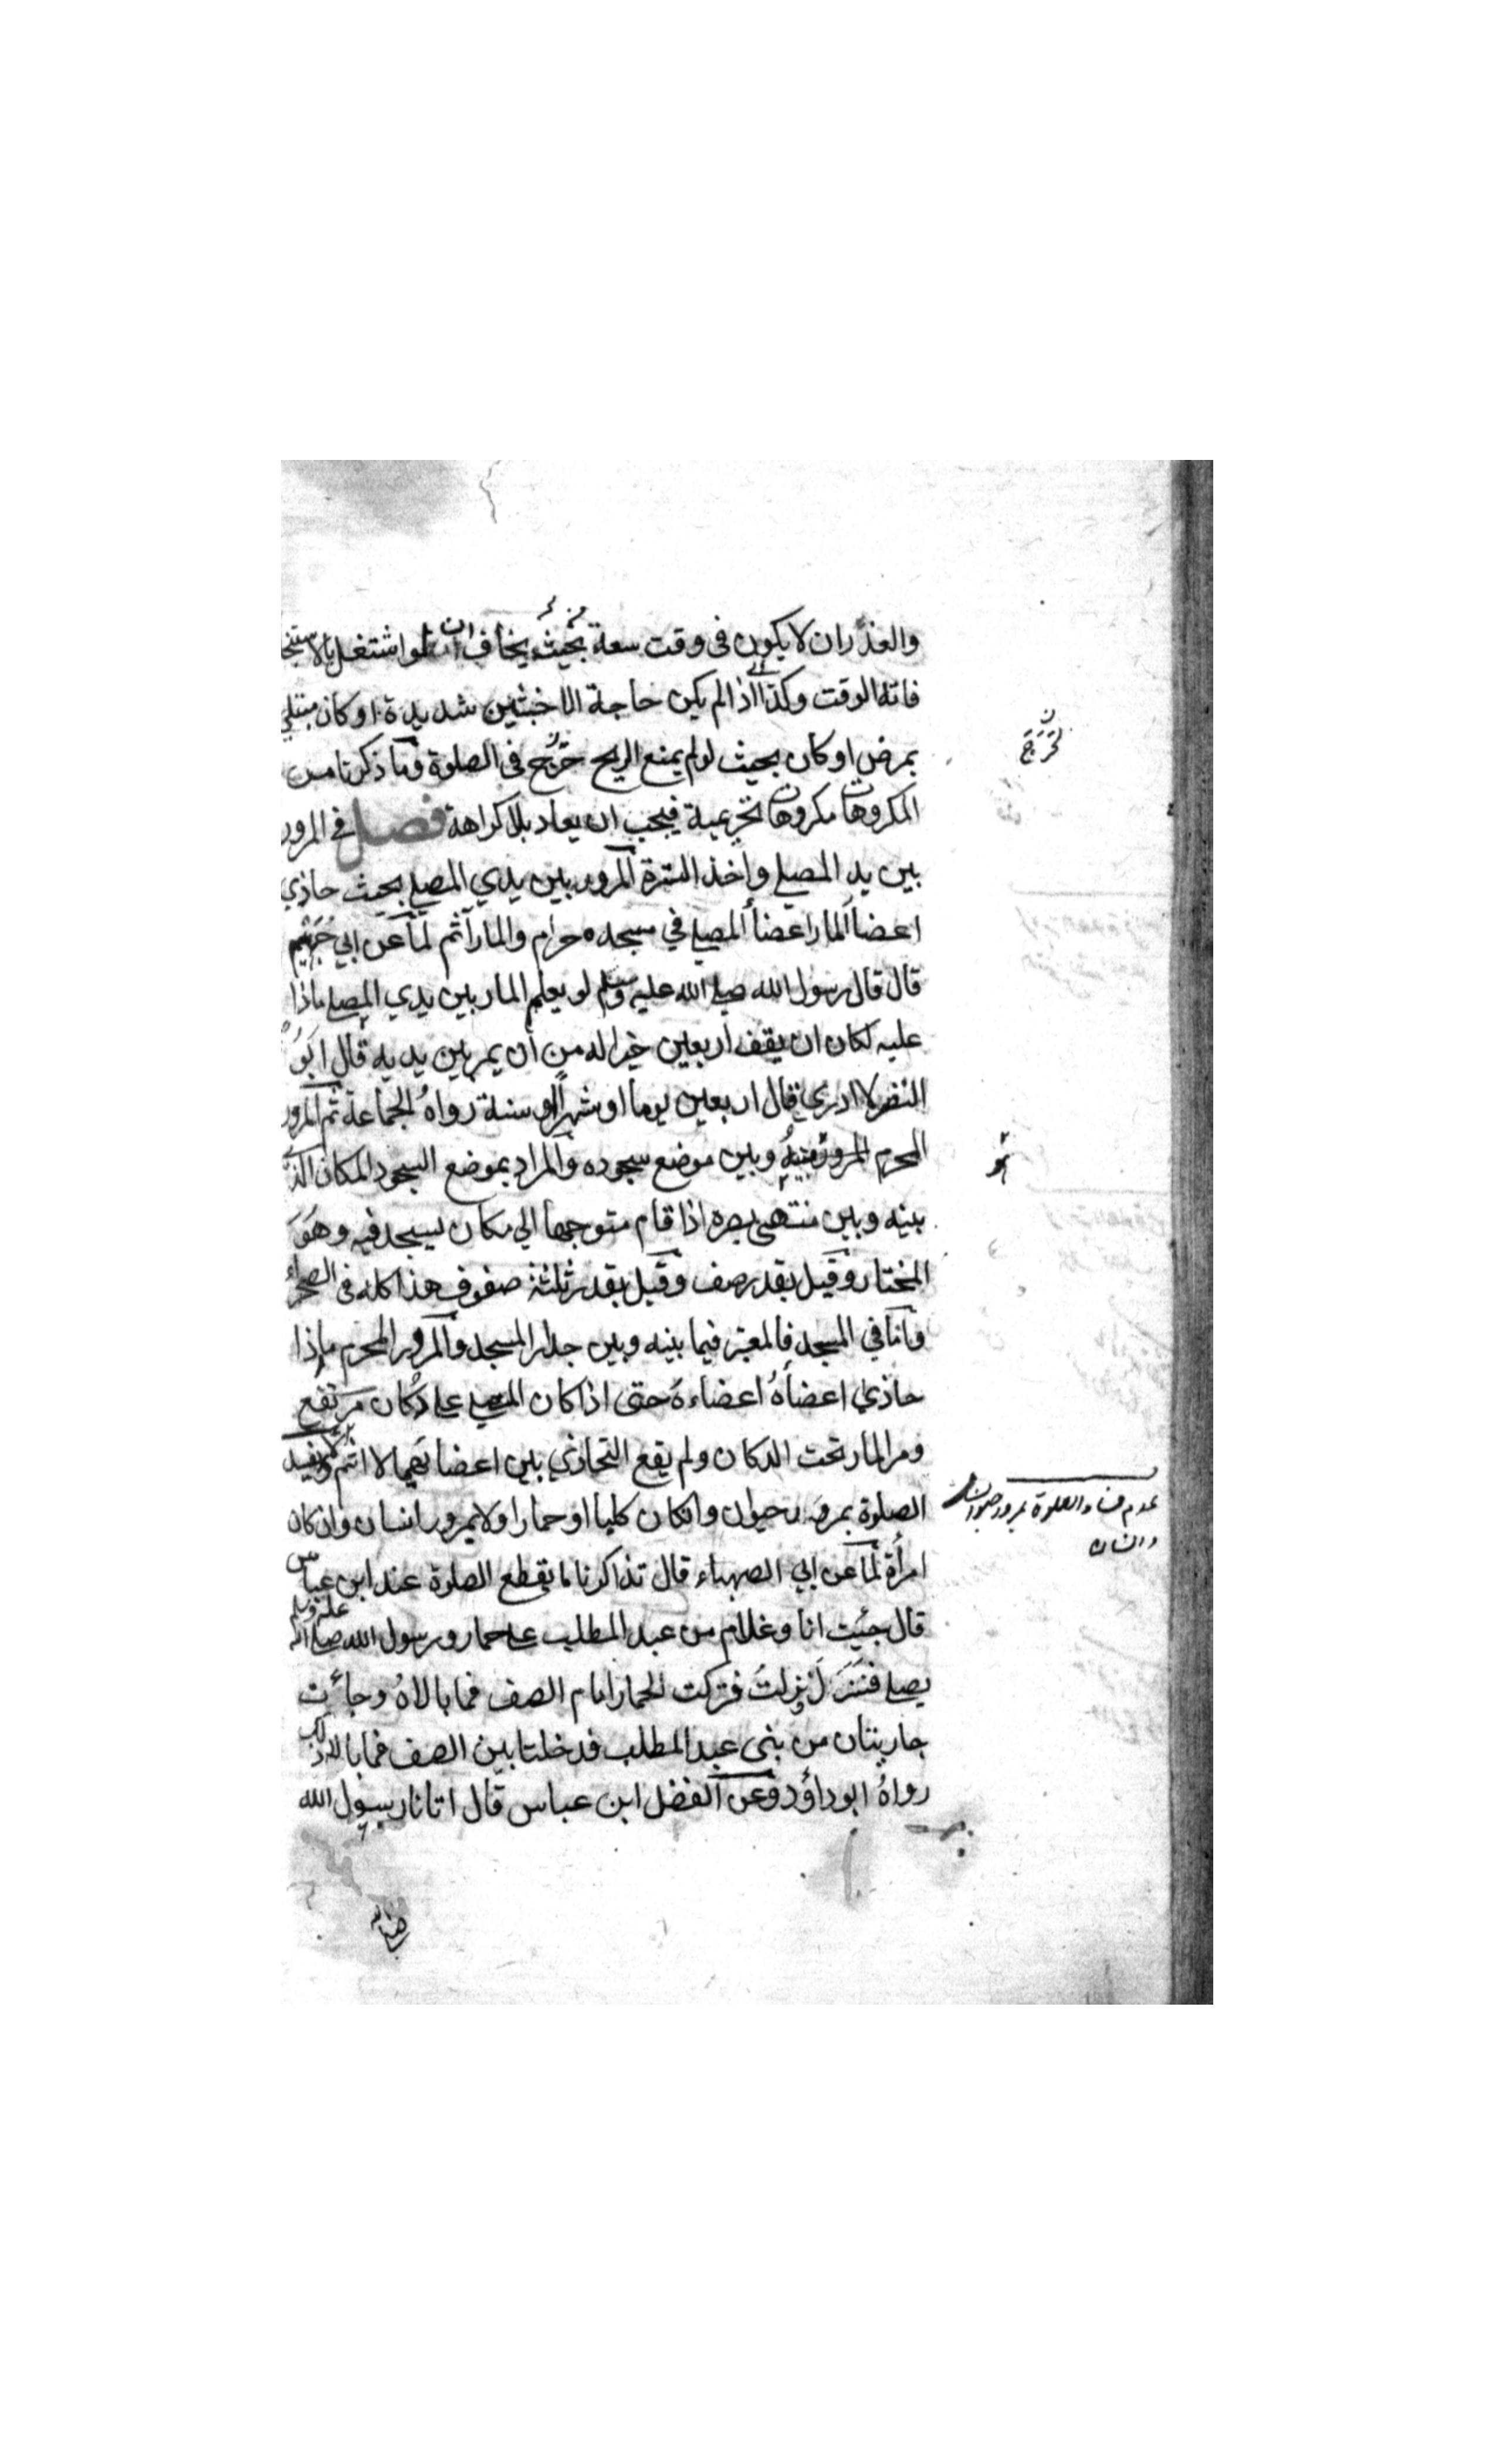 والعذران لا يكون فى وقت سعة بحيث يخاف ان لو اشتغل بالاستنجا
فاته الوقت وكذا اذا لم يكن حاجة الاخبثين شديدة او كان مبتلي
بمرض او كان بحيث لو لم يمنع الريح خَرَج فى الصلوة وما ذكرنا من
المكروهات مكروهات تحريمية فيجب ان يعاد بلا كراهة فصل في المرور
بين يد المصلي واخذ السترة المرور بين يدي المصلي بحيث حاذي
اعضأ المار اعضأ المصلي في مسجده حرام والمار آثم لما عن ابي جُهَيم
قال قال رسول الله صلي الله عليه وسلم لو يعلم المار بين يدي المصلي ماذا
عليه لكان ان يقف اربعين خيرا له من ان يمر بين يديه قال ابَوُ
النضر لا ادري قال اربعين يوما او شهرا او سنة رواهُ الجماعة ثم المرور
المحرم المرور بينهُ وبين موضع سجوده والمراد بموضع السجود المكان الذي
بينه وبين منتهى بصره اذا قام متوجها الي مكان يسجد فيه وهوَ
المختار وقيل بقدر صف وقيل بقدر ثلثة صفوف هذا كله فى الصحراء
واما في المسجد فالمعتبر فيما بينه وبين جدار المسجد والمرور المحرم ماذا
حاذي اعضأهُ اعضاءهُ حتى اذا كان المصلي علي دُكان مرتفع
ومر المار تحت الدكان ولم يقع التحاذي بين اعضائهما لا اثم ولا يفسد
الصلوة بمرور حيوان وانكان كلبا او حمارا ولا بمرور انسان وان كان
امرأة لما عن ابي الصهباء قال تذاكرنا ما يقطع الصلوة عند ابن عباس
قال جئيت انا وغلام من عبد المطلب علي حمار ورسول الله صلي الله عليه وسلم
يصلي فنَزَلَ ونزلتُ فتركت الحمار امام الصف فما بالاهُ وجأت
جاريتان من بنى عبد المطلب فدخلتا بين الصف فما بالا ذلك
رواهُ ابو داؤد وعن الفضل ابن عباس قال اتانا رسول الله
لخَرَجَ
ن
عدم فساد الصلوة بمرور حيوان
وانسان